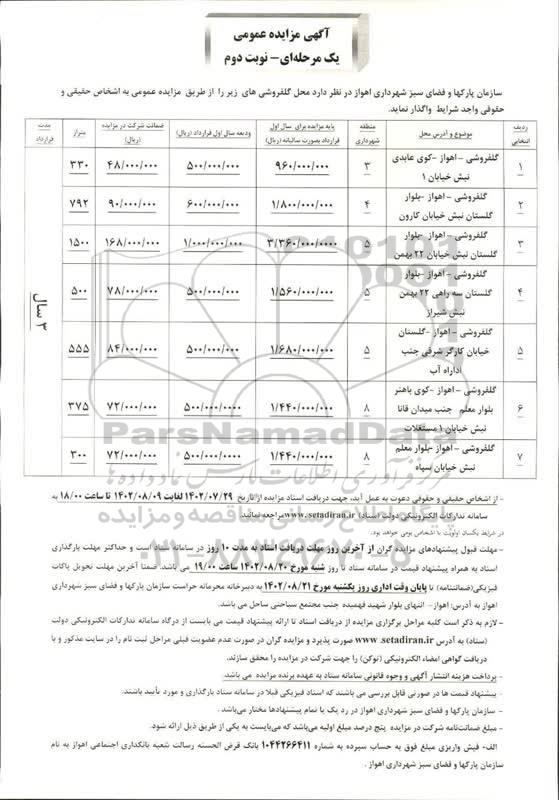 آگهی مزایده عمومی
یک مرحله‌ای - نوبت دوم
سازمان پارکها و فضای سبز شهرداری اهواز در نظر دارد محل گلفروشی های زیر را از طریق مزایده عمومی به اشخاص حقیقی و
حقوقی واجد شرایط واگذار نماید.
ردیف انتخابی | موضوع و آدرس محل | منطقه شهرداری | پایه مزایده برای سال اول قرارداد بصورت سالیانه (ریال) | ودیعه سال اول قرارداد (ریال) | ضمانت شرکت در مزایده (ریال) | متراژ | مدت قرارداد
۱ | گلفروشی - اهواز - کوی عابدی نبش خیابان ۱ | ۳ | ۹۶۰/۰۰۰/۰۰۰ | ۵۰۰/۰۰۰/۰۰۰ | ۴۸/۰۰۰/۰۰۰ | ۳۳۰
۲ | گلفروشی - اهواز - بلوار گلستان نبش خیابان کارون | ۴ | ۱/۸۰۰/۰۰۰/۰۰۰ | ۶۰۰/۰۰۰/۰۰۰ | ۹۰/۰۰۰/۰۰۰ | ۷۹۲
۳ | گلفروشی - اهواز - بلوار گلستان نبش خیابان ۲۲ بهمن | ۵ | ۳/۳۶۰/۰۰۰/۰۰۰ | ۱/۰۰۰/۰۰۰/۰۰۰ | ۱۶۸/۰۰۰/۰۰۰ | ۱۵۰۰
۴ | گلفروشی - اهواز - بلوار گلستان سه راهی ۲۲ بهمن نبش شیراز | ۵ | ۱/۵۶۰/۰۰۰/۰۰۰ | ۵۰۰/۰۰۰/۰۰۰ | ۷۸/۰۰۰/۰۰۰ | ۵۰۰
۳ سال
۵ | گلفروشی - اهواز - گلستان خیابان کارگر شرقی جنب اداراه آب | ۵ | ۱/۶۸۰/۰۰۰/۰۰۰ | ۵۰۰/۰۰۰/۰۰۰ | ۸۴/۰۰۰/۰۰۰ | ۵۵۵
۶ | گلفروشی - اهواز - کوی باهنر بلوار معلم جنب میدان قانا نبش خیابان ۱ مستغلات | ۸ | ۱/۴۴۰/۰۰۰/۰۰۰ | ۵۰۰/۰۰۰/۰۰۰ | ۷۲/۰۰۰/۰۰۰ | ۳۷۵
۷ | گلفروشی - اهواز - بلوار معلم نبش خیابان سپاه | ۸ | ۱/۴۴۰/۰۰۰/۰۰۰ | ۵۰۰/۰۰۰/۰۰۰ | ۷۲/۰۰۰/۰۰۰ | ۳۰۰
ParsNamadData
- از اشخاص حقیقی و حقوقی دعوت به عمل آید، جهت دریافت اسناد مزایده از تاریخ ۱۴۰۲/۰۷/۲۹ لغایت ۱۴۰۲/۰۸/۰۹ تا ساعت ۱۸/۰۰ به
سامانه تدارکات الکترونیکی دولت (ستاد) www.setadiran.ir مراجعه نمایند.
در شرایط یکسان اولویت با اشخاص بومی خواهد بود.
- مهلت قبول پیشنهادهای مزایده گران از آخرین روز مهلت دریافت اسناد به مدت ۱۰ روز در سامانه ستاد است و حداکثر مهلت بارگذاری
اسناد و پیشنهاد قیمت در سامانه ستاد تا روز شنبه مورخ ۱۴۰۲/۰۸/۲۰ ساعت ۱۹/۰۰ می باشد. ضمنا آخرین مهلت تحویل پاکات
فیزیکی(ضمانتنامه) تا پایان وقت اداری روز یکشنبه مورخ ۱۴۰۲/۰۸/۲۱ به دبیرخانه محرمانه حراست سازمان پارکها و فضای سبز شهرداری
اهواز به آدرس: اهواز - انتهای بلوار شهید فهمیده جنب مجتمع سیاحتی ساحل می باشد.
- لازم به ذکر است کلیه مراحل برگزاری مزایده از دریافت اسناد تا ارائه پیشنهاد قیمت می بایست از درگاه سامانه تدارکات الکترونیکی دولت
(ستاد) به آدرس www.setadiran.ir صورت پذیرد و مزایده گران در صورت عدم عضویت قبلی مراحل ثبت نام را در سایت مذکور و یا
دریافت گواهی امضاء الکترونیکی (توکن) را جهت شرکت در مزایده را محقق سازند.
- پرداخت هزینه انتشار آگهی و وجوه قانونی سامانه ستاد به عهده برنده مزایده می باشد.
- پیشنهاد قیمت ها در صورتی قابل بررسی می باشند که اسناد فیزیکی قبلا در سامانه ستاد بارگذاری و مورد تأیید باشند.
- سازمان پارکها و فضای سبز شهرداری اهواز در رد یک یا تمام پیشنهادها مختار می‌باشد.
- مبلغ ضمانتنامه شرکت در مزایده پنج درصد مبلغ اولیه می‌باشد که می‌بایست به یکی از طریق ذیل ارائه شود.
الف- فیش واریزی مبلغ فوق به حساب سپرده به شماره ۱۰۴۴۲۶۶۴۱۱ بانک قرض الحسنه رسالت شعبه بانکداری اجتماعی اهواز به نام
سازمان پارکها و فضای سبز شهرداری اهواز.